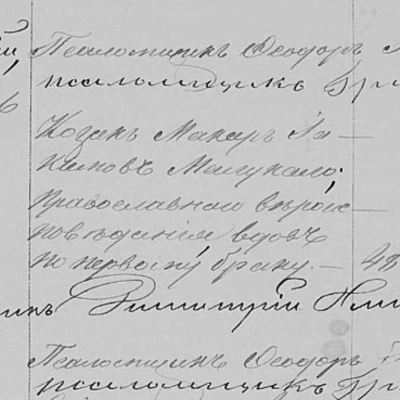 Псаломщикъ Ѳеодоръ
псаломщикъ Гри
Козакъ Макаръ Іа-
кимовъ
православнаго вѣроис-
повѣданія вдовъ
по первому браку. — 48
Димитрій
Псаломщикъ Ѳеодоръ
псаломщикъ Гри